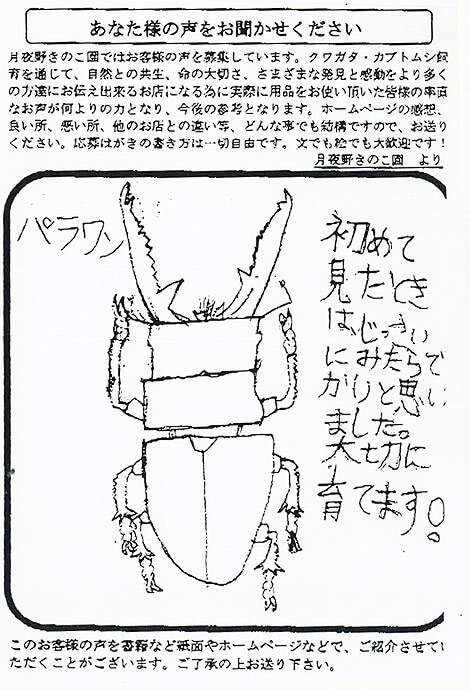 あなた様の声をお聞かせください
月夜野きのこ園ではお客様の声を募集しています。クワガタ・カブトムシ飼
育を通じて、自然との共生、命の大切さ、さまざまな発見と感動をより多く
の方達にお伝え出来るお店になる為に実際に用品をお使い頂いた皆様の率直
なお声が何よりの力となり、今後の参考となります。ホームページの感想、
良い所、悪い所、他のお店との違い等、どんな事でも結構ですので、お送り
ください。応募はがきの書き方は一切自由です。文でも絵でも大歓迎です！
月夜野きのこ園 より
パラワン
初めて
見たとき
は、じっさい
にみたらで
かいと思い
ました。
大切に
育てます。
このお客様の声を書籍など紙面やホームページなどで、ご紹介させてい
ただくことがございます。ご了承の上お送り下さい。